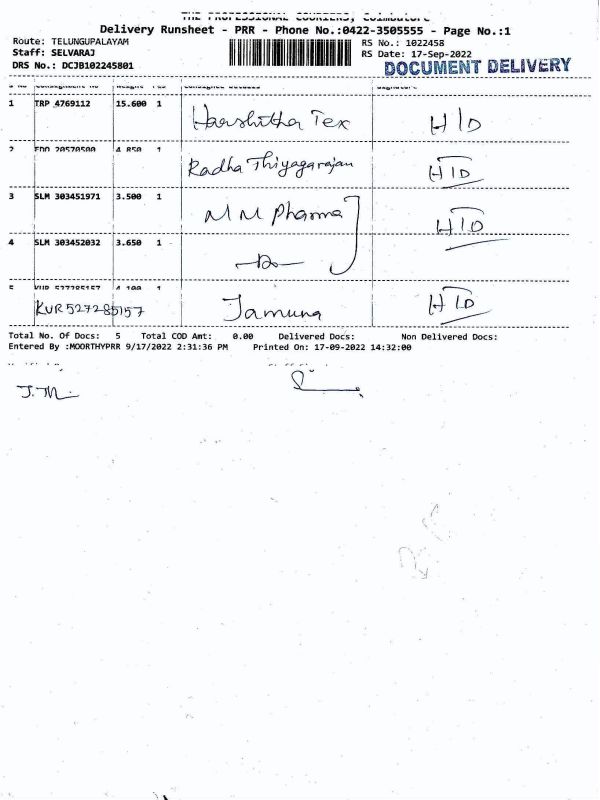 THE PROFESSIONAL COURIERS, Coimbatore
Delivery Runsheet - PRR - Phone No.:0422-3505555 - Page No.:1
Route: TELUNGUPALAYAM RS No.: 1022458
Staff: SELVARAJ RS Date: 17-Sep-2022
DRS No.: DCJB102245801 DOCUMENT DELIVERY
S No Consignment No Weight Pcs Consignee Details Signature
1 TRP 4769112 15.600 1 Harshitha Tex H/D
2 EDO 20570500 4.850 1 Radha Thiyagarajan H/D
3 SLM 303451971 3.500 1 M M Pharma H/D
4 SLM 303452032 3.650 1 -Do-
5 KUR 527285157 4.100 1
KUR527285157 Jamuna H/D
Total No. Of Docs: 5 Total COD Amt: 0.00 Delivered Docs: Non Delivered Docs:
Entered By :MOORTHYPRR 9/17/2022 2:31:36 PM Printed On: 17-09-2022 14:32:00